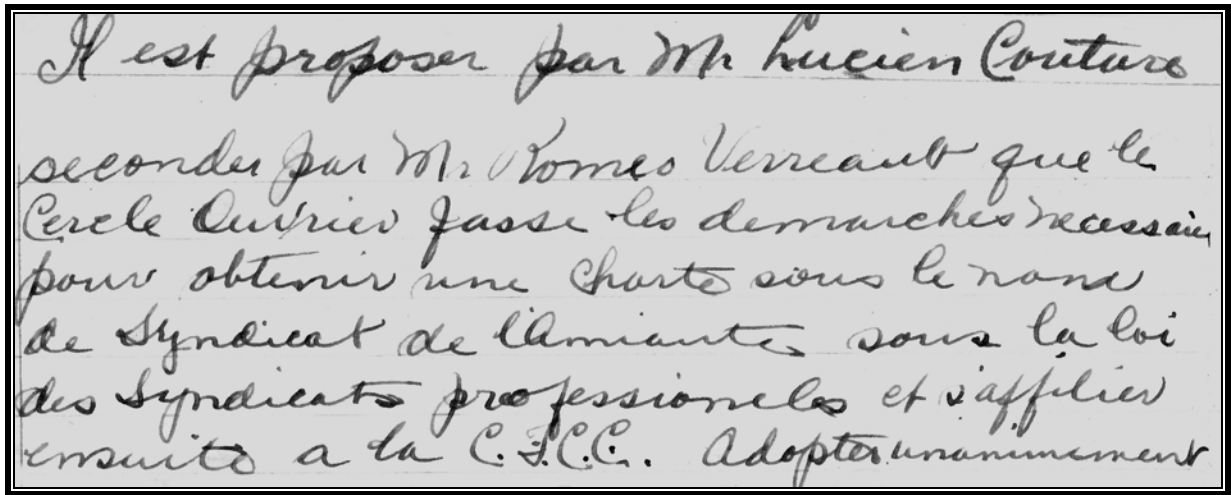 Il est proposer par Mr Lucien Couture
seconder par Mr Romeo Verreault que le
Cercle Ouvrier fasse les demarches necessaire
pour obtenir une charte sous le nom
de Syndicat de l'Amiante sous la loi
des Syndicats professionels et s'affilier
ensuite a la C.T.C.C. Adopter unanimement